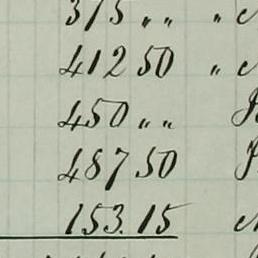 375 " " "
412 50 "
450 " "
487 50
153.15